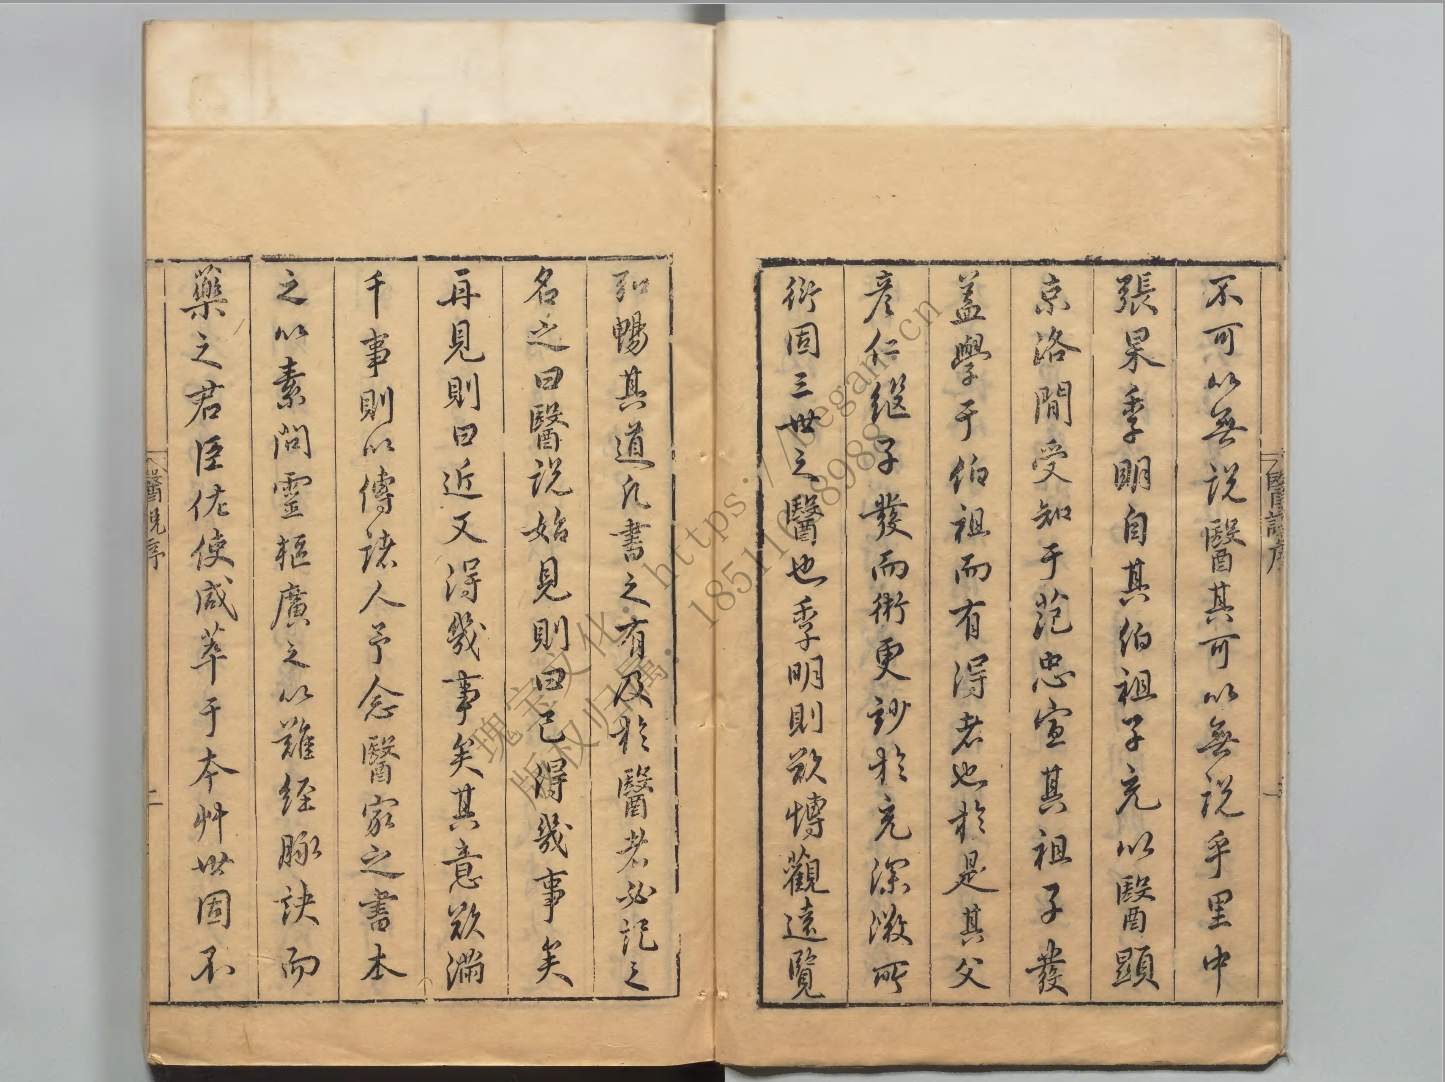 不可以無說醫其可以無說乎里中
張杲季明自其伯祖子充以醫顯
京洛間受知于范忠宣其祖子發
蓋學于伯祖而有得者也於是其父
彦仁継子發而術更玅於充深激所
術固三世之醫也季明則欲愽觀遠覽
弘暢其道凡書之有及於醫者必記之
名之曰醫說始見則曰已得幾事矣
再見則曰近又得幾事矣其意欲滿
千事則以傳諸人予念醫家之書本
之以素問靈樞廣之以難經脉訣而
藥之君臣佐使咸萃于本艸世固不
醫說序
二
醫說序
瑰宝文化. https://began.cn
版权归属. 18511088988